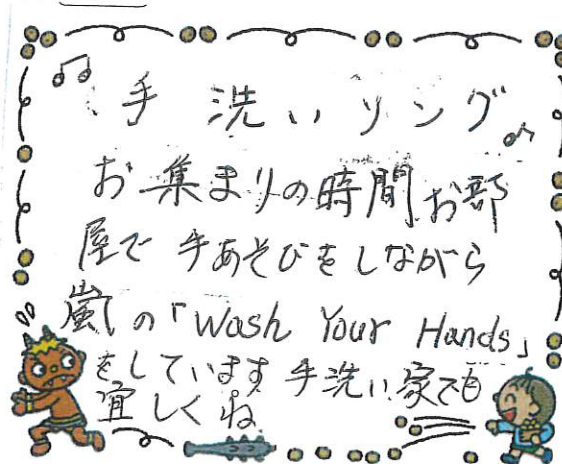 手洗いソング
お集まりの時間お部
屋で手あそびをしながら
嵐の「Wash Your Hands」
をしています手洗い家でも
宜しくね